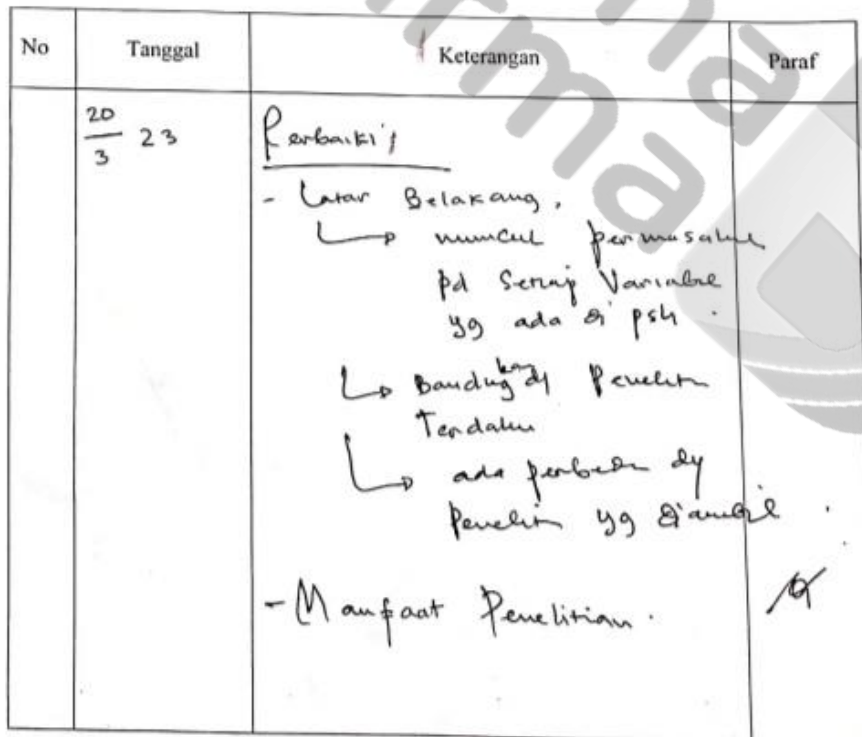 No Tanggal Keterangan Paraf
20/3 23 Perbaiki;
- Latar Belakang.
muncul permasalah
pd Setiap Variabel
yg ada di psh.
Bandingkan dg Peneliti
Terdahu
ada perbedan dg
Peneliti yg diambil.
- Manfaat Penelitian.